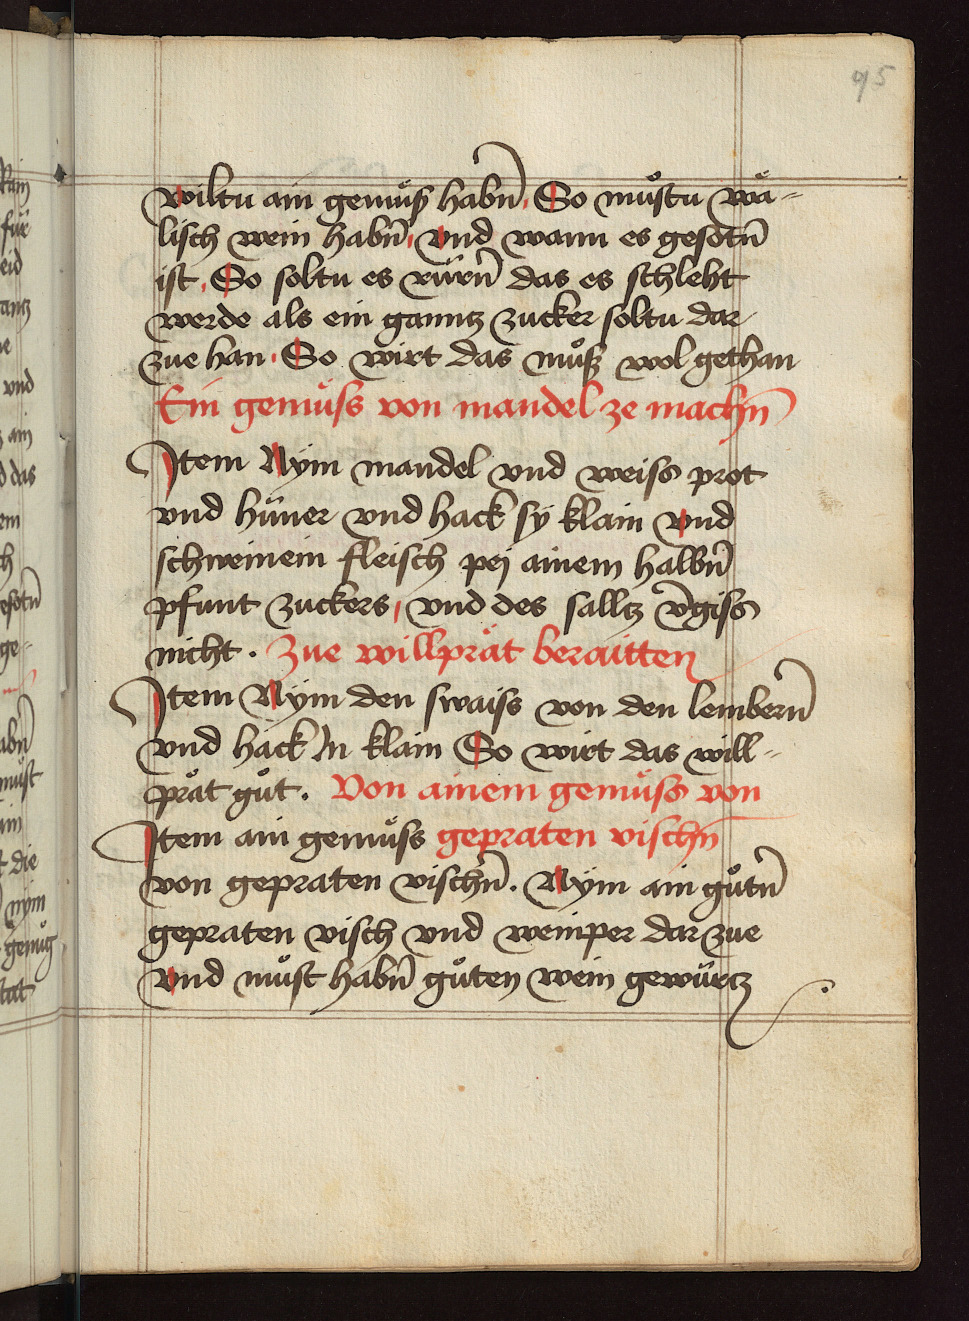 95
wiltu ain gemuͤſß habn̄ So muͦſtu wä-
liſch wein habn̄ vnd wann es geſotn̄
iſt So ſoltu es ruͤrn̄ das es ſchleht
werde als ein ganntz zucker ſoltu dar
zue han So wirt das muͦß wol gethan
Ein gemuͤſs von mandel ze machn̄
Item Nym mandel vnd weiſs prot
vnd huͤner vnd hack ſÿ klain vnd
ſchweinein fleiſch peÿ ainem halbn̄
pfunt zuckers vnd des ſalltz v̄giſs
nicht. Zue willprät beraitten
Item Nym den ſwaiſs von den lembern̄
vnd hack In klain So wirt das will-
prät guͦt. Von ainem gemuͤſs von
Item ain gemuͤſs gepraten viſchn̄
von gepraten viſchn̄. Nym ain guͦtn̄
gepraten viſch vnd weinper dar zue
vnd muͦſt habn̄ guͦten wein gewuͤrtz